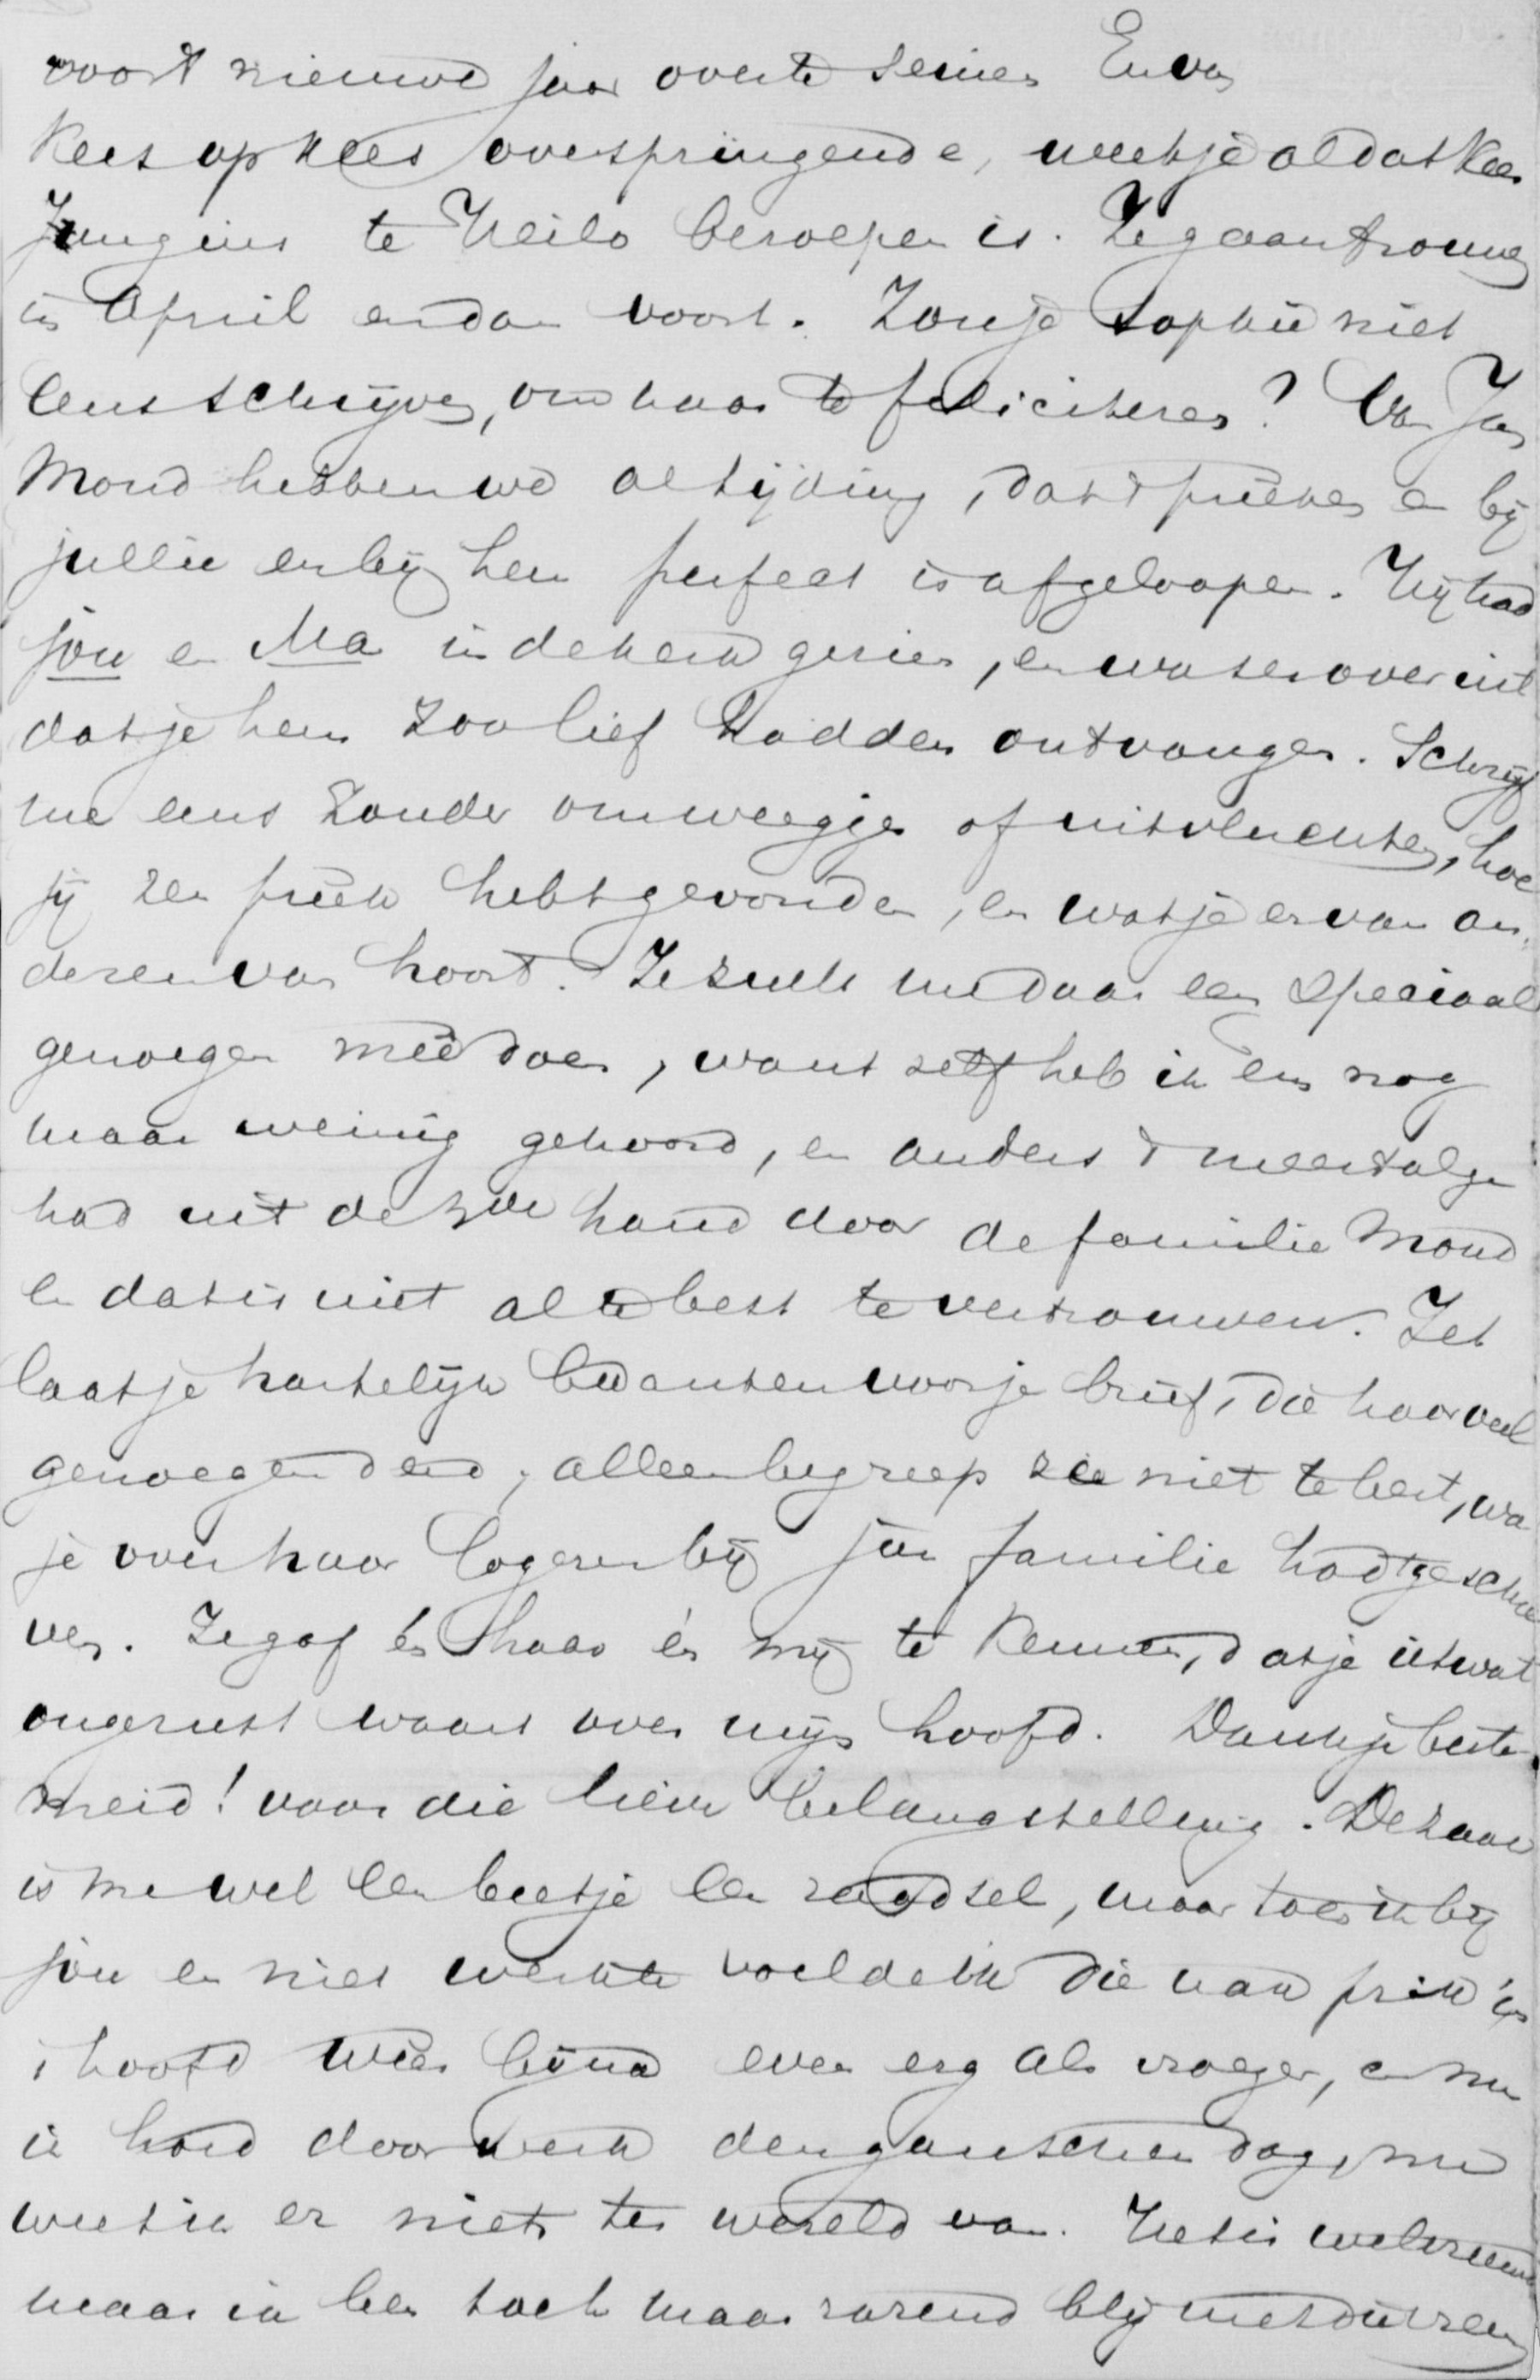 voor't nieuwe jaar over te seinen En van
Kees op Kees overspringende, weet je al dat Kees
Jungius te Heilo beroepen is. Ze gaan trouwen
in April en dan voort. Zou je Sophie niet
eens schrijven, om haar te feliciteren? Van Jan
Mond hebben we al tijding, dat 't preeken en bij
jullie en bij hem perfect is afgeloopen. Hij had
jou en Ma in de kerk gezien, en was er over uit
dat je hem zoo lief hadden ontvangen. Schrijf
me eens zonder omweegjes of uitvluchten, hoe
jij zen preek hebt gevonden, en wat je er van an-
deren van hoort. Je zult me daar een speciaal
genoegen meê doen, want zelf heb ik em nog
maar weinig gehoord, en anders 't meerendeel
had uit de 3de hand door de familie Mond
en dat is niet al te best te vertrouwen. Jet
laat je hartelijk bedanken voor je brief, die haar veel
genoegen deed, alleen begreep zie niet te best, wa
je over haar logeren bij jou familie hadt geschre
ven. Je gaf én haar én mij te kennen, dat je ietwat
ongerust waart over mijn hoofd. Dank je beste
meid! voor die lieve belangstelling. De zaak
is me wel een beetje een raadsel, maar toen ik bij
jou en niet werkte voelde ik die nare prik in
't hoofd weer bijna even erg als vroeger, en nu
ik hard door werk den ganschen dag, nu
weet ik er niets ter wereld van. Het is wel vreemd
maar ik ben toch maar razend blij met dit vreem